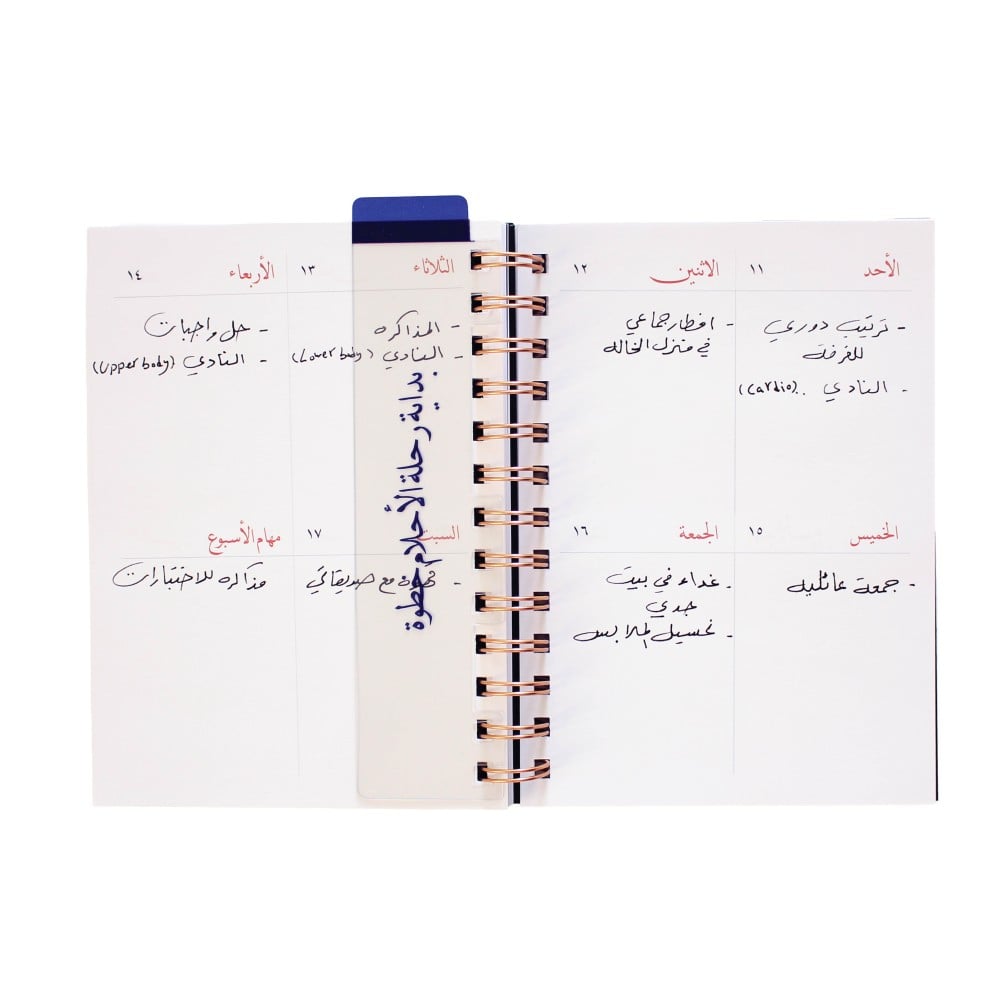 الأحد ١١
- ترتيب دوري
للغرفة
- النادي (Cardio)
الاثنين ١٢
- افطار جماعي
في منزل الخاله
الخميس ١٥
- جمعة عائليه
الجمعة ١٦
- غداء في بيت
جدي
- غسيل الملابس
الثلاثاء ١٣
- المذاكره
- النادي (Lower body)
الأربعاء ١٤
- حل واجبات
- النادي (Upper body)
السبت ١٧
- مع صديقاتي
مهام الأسبوع
مذاكره للاختبارات
بداية رحلة الأحلام خطوة